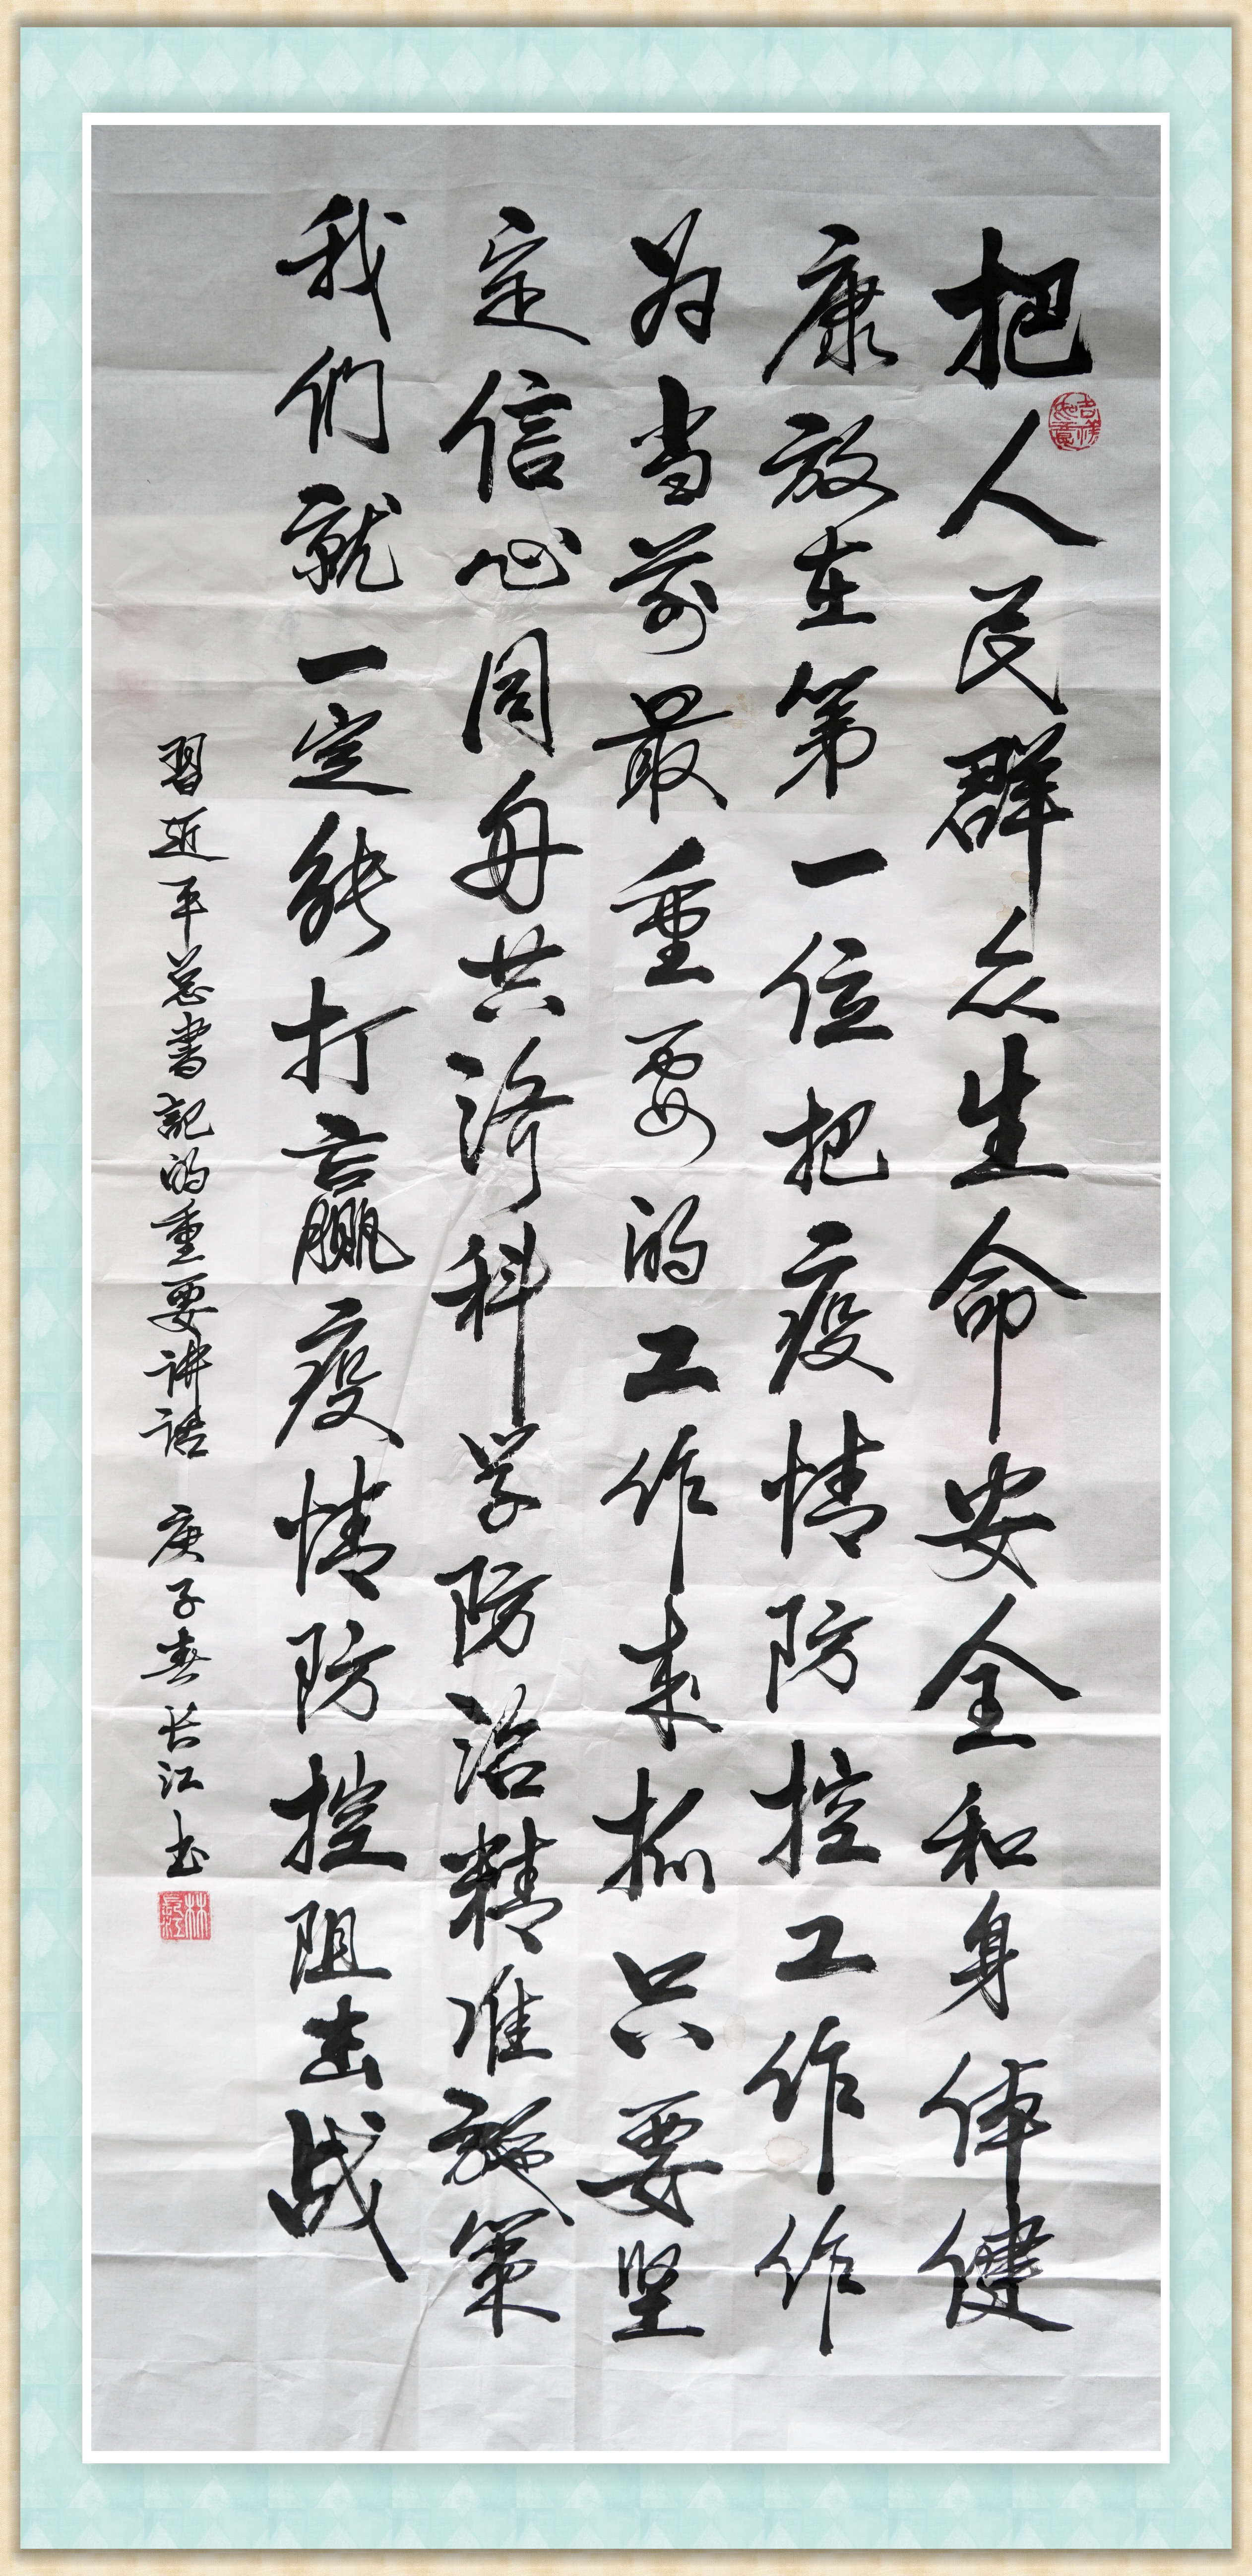 把人民群众生命安全和身体健
康放在第一位把疫情防控工作作
为当前最重要的工作来抓只要坚
定信心同舟共济科学防治精准施策
我们就一定能打赢疫情防控阻击战
習近平总書記的重要讲话 庚子春长江书
吉祥如意
林長江